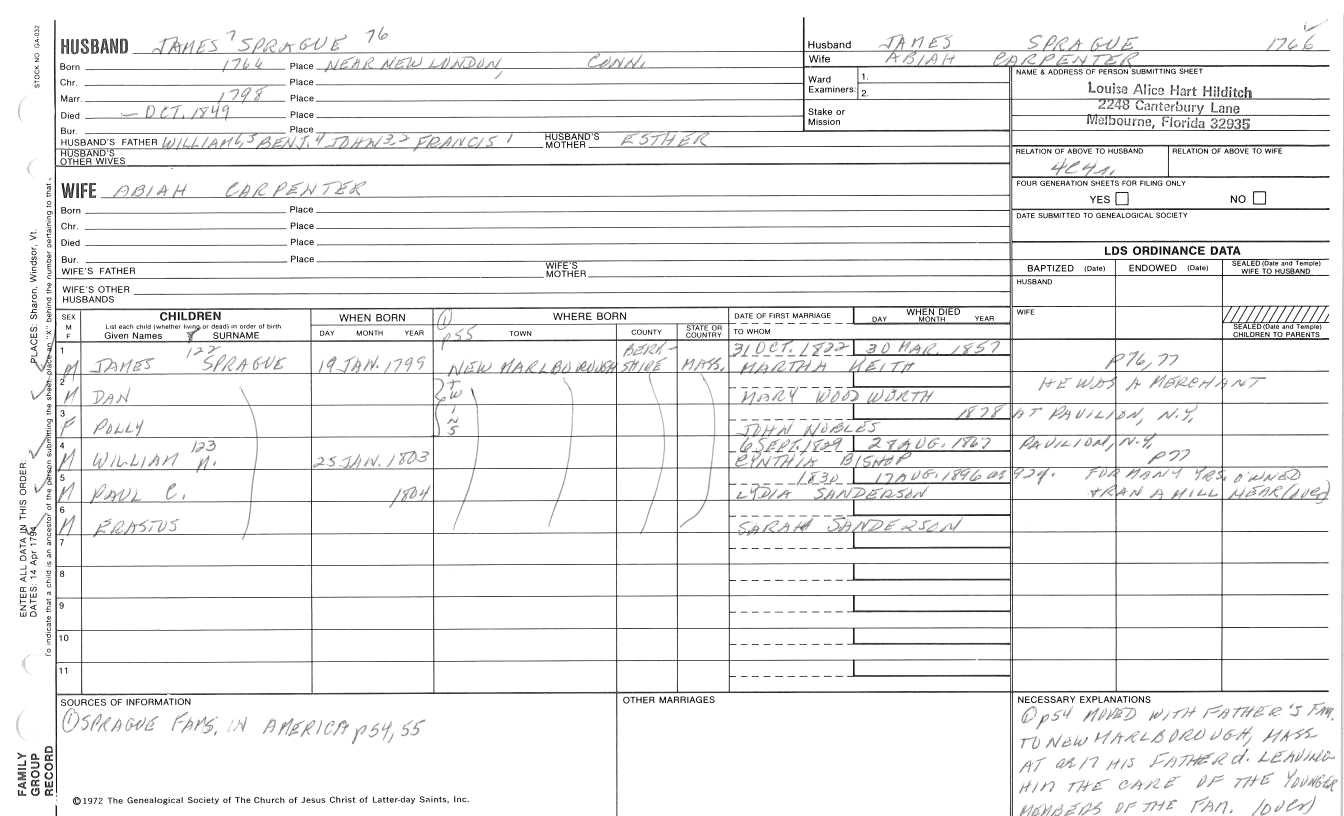 STOCK NO. GA-032
HUSBAND JAMES 7 SPRAGUE 76
Born 1764 Place NEAR NEW LONDON, CONN.
Chr. Place
Marr. 1798 Place
Died – OCT. 1849 Place
Bur. Place
HUSBAND'S FATHER WILLIAM 6, 5 BENJ. 4 JOHN 3, 2 FRANCIS 1 HUSBAND'S MOTHER ESTHER
HUSBAND'S OTHER WIVES
WIFE ABIAH CARPENTER
Born Place
Chr. Place
Died Place
Bur. Place
WIFE'S FATHER WIFE'S MOTHER
WIFE'S OTHER HUSBANDS
Husband JAMES SPRAGUE 1766
Wife ABIAH CARPENTER
Ward Examiners: 1. 2.
Stake or Mission
NAME & ADDRESS OF PERSON SUBMITTING SHEET
Louise Alice Hart Hilditch
2248 Canterbury Lane
Melbourne, Florida 32935
RELATION OF ABOVE TO HUSBAND RELATION OF ABOVE TO WIFE
4C4r.
FOUR GENERATION SHEETS FOR FILING ONLY
YES NO
DATE SUBMITTED TO GENEALOGICAL SOCIETY
LDS ORDINANCE DATA
BAPTIZED (Date) ENDOWED (Date) SEALED (Date and Temple) WIFE TO HUSBAND
HUSBAND
WIFE
SEALED (Date and Temple) CHILDREN TO PARENTS
SEX M F
CHILDREN
List each child (whether living or dead) in order of birth
Given Names SURNAME
WHEN BORN
DAY MONTH YEAR
WHERE BORN
① p55 TOWN COUNTY STATE OR COUNTRY
DATE OF FIRST MARRIAGE
TO WHOM
WHEN DIED
DAY MONTH YEAR
1 M JAMES 122 SPRAGUE 19 JAN. 1799 NEW MARLBOROUGH BERK-SHIRE MASS. 31 OCT. 1822 30 MAR. 1857 p76, 77
MARTHA KEITH
2 M DAN TWINS MARY WOODWORTH HE WAS A MERCHANT
3 F POLLY 1878 AT PAVILION, N.Y.
JOHN NOBLES
4 M WILLIAM 123 N. 25 JAN. 1803 6 SEPT. 1829 28 AUG. 1867 PAVILION, N.Y.
CYNTHIA BISHOP p77
5 M PAUL C. 1804 1830 17 AUG. 1896 ae 92y. FOR MANY YRS. OWNED
LYDIA SANDERSON & RAN A MILL NEAR (over)
6 M ERASTUS
SARAH SANDERSON
7
8
9
10
11
SOURCES OF INFORMATION
① SPRAGUE FAMS. IN AMERICA p54, 55
OTHER MARRIAGES
NECESSARY EXPLANATIONS
① p54 MOVED WITH FATHER'S FAM.
TO NEW MARLBOROUGH, MASS
AT ae 17 HIS FATHER d. LEAVING
HIM THE CARE OF THE YOUNGER
MEMBERS OF THE FAM. (over)
©1972 The Genealogical Society of The Church of Jesus Christ of Latter-day Saints, Inc.
FAMILY GROUP RECORD
ENTER ALL DATA IN THIS ORDER:
DATES: 14 Apr 1794
PLACES: Sharon, Windsor, Vt.
To indicate that a child is an ancestor of the person submitting the sheet, place an "X" behind the number pertaining to that